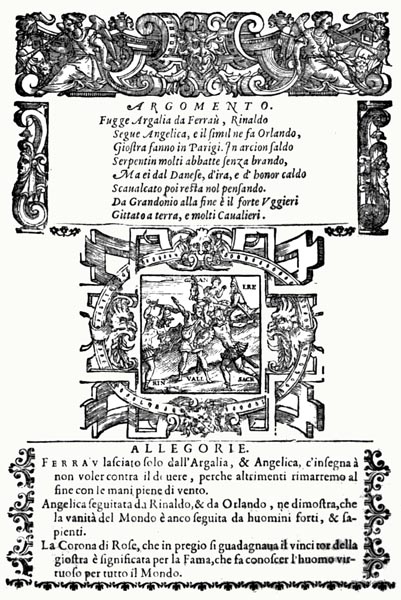 ARGOMENTO.
Fugge Argalia da Ferraù, Rinaldo
Segue Angelica, e il simil ne fa Orlando,
Giostra fanno in Parigi. In arcion saldo
Serpentin molti abbatte senza brando,
Ma ei dal Danese, d'ira, e d'honor caldo
Scaualcato poi resta nol pensando.
Da Grandonio alla fine è il forte Vggieri
Gittato a terra, e molti Caualieri.
AN
IRE
RIN
VALL
SACR
ALLEGORIE.
FERRAV lasciato solo dall'Argalia, & Angelica, c'insegna à
non voler contra il d uere, perche altrimenti rimarremo al
fine con le mani piene di vento.
Angelica seguitata da Rinaldo, & da Orlando, ne dimostra, che
la vanità del Mondo è anco seguita da huomini forti, & sa-
pienti.
La Corona di Rose, che in pregio si guadagnaua il vincitor della
giostra è significata per la Fama, che fa conoscer l'huomo vir-
tuoso per tutto il Mondo.